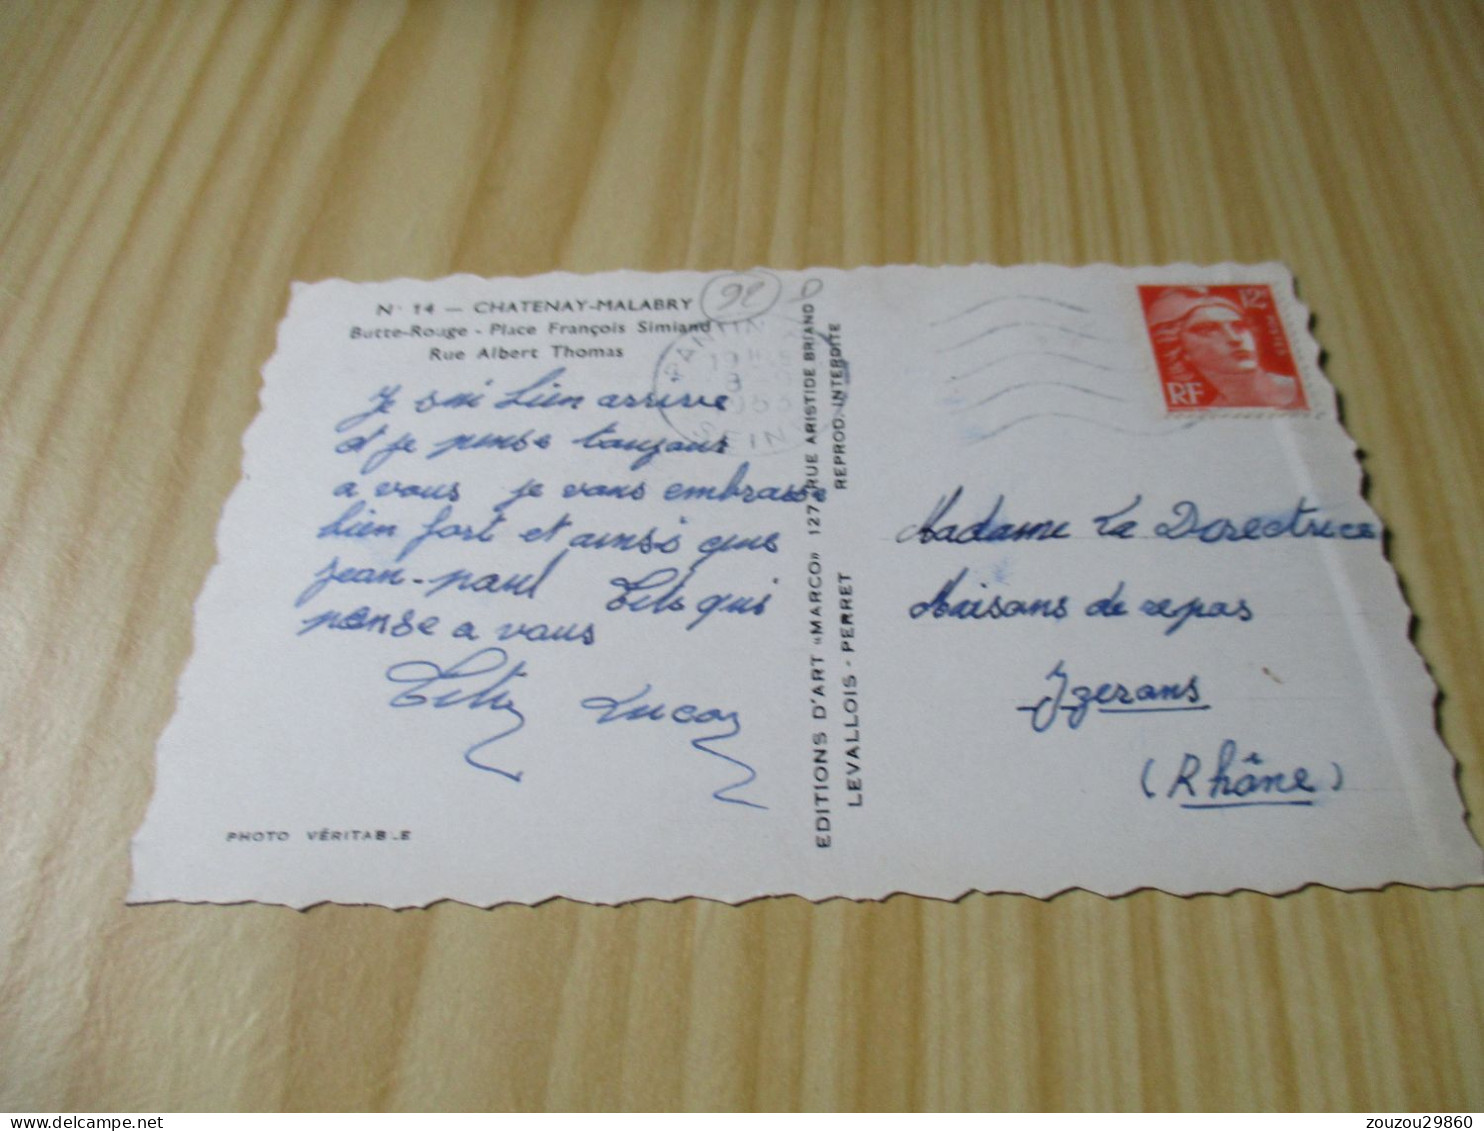 N° 14 — CHATENAY-MALABRY
Butte-Rouge - Place François Simiand
Rue Albert Thomas
92
Je sui bien arrive
et je pense toujours
a vous je vous embrasse
bien fort et ainsi que
jean-paul Titi qui
pense a vous
PHOTO VÉRITABLE
EDITIONS D'ART «MARCO» 127, RUE ARISTIDE BRIAND
LEVALLOIS - PERRET REPROD. INTERDITE
PANTIN
SEINE
12F
RF
Madame La Directrice
Maisons de repos
Yzerons
(Rhône)
zouzou29860